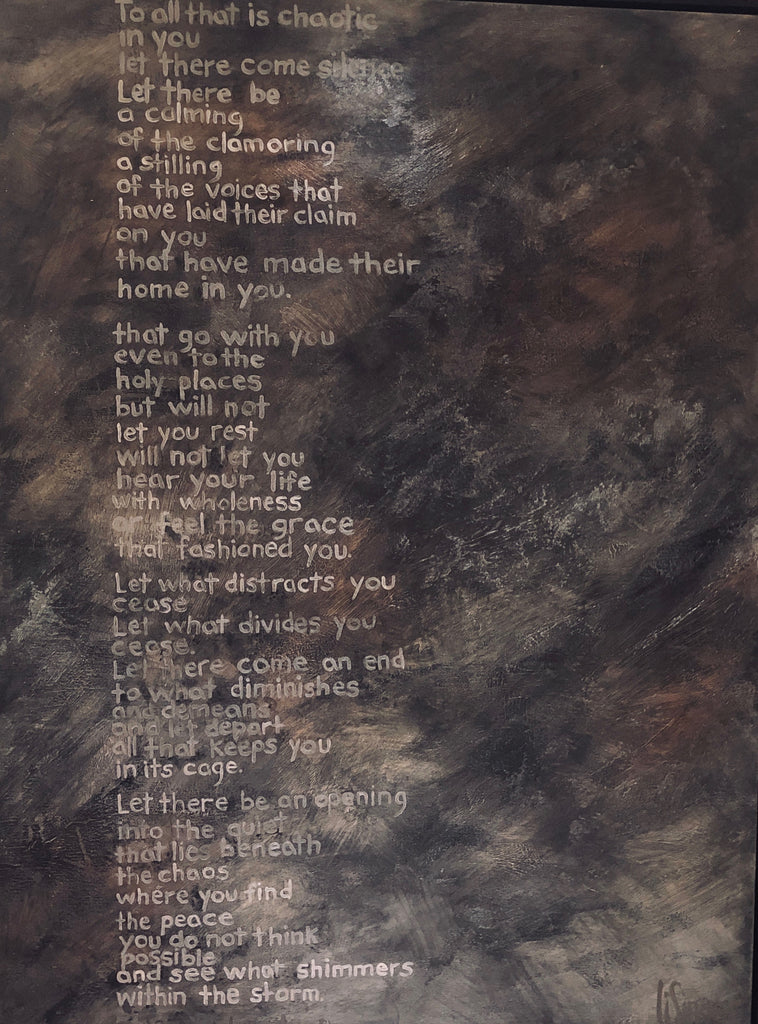 To all that is chaotic
in you
let there come silence
Let there be
a calming
of the clamoring
a stilling
of the voices that
have laid their claim
on you
that have made their
home in you.
that go with you
even to the
holy places
but will not
let you rest
will not let you
hear your life
with wholeness
or feel the grace
that fashioned you.
Let what distracts you
cease
Let what divides you
cease.
Let there come an end
to what diminishes
and demeans
and let depart
all that keeps you
in its cage.
Let there be an opening
into the quiet
that lies beneath
the chaos
where you find
the peace
you do not think
possible
and see what shimmers
within the storm.